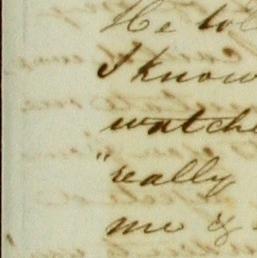 He tol
I know
watche
"really
me &